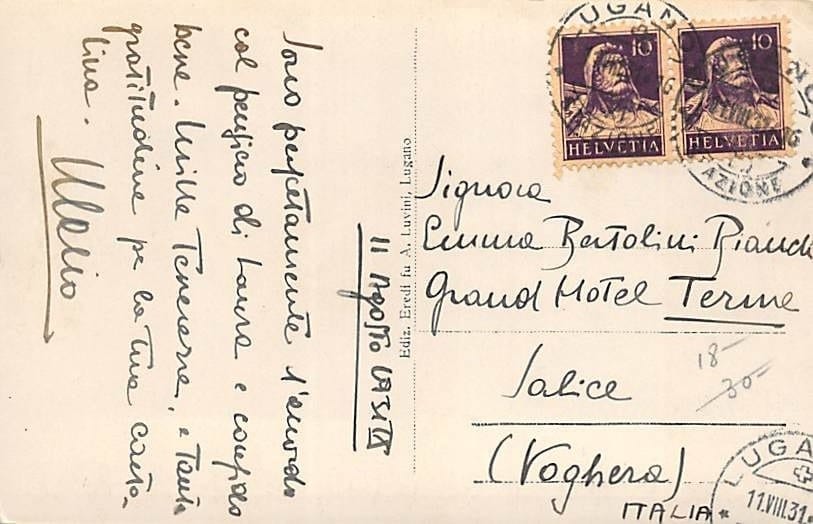 Sono perfettamente d'accordo
col pensiero di Laura e
bene. Mille tenerezze, e tante
gratitudine per la tua carto-
lina.
11 Agosto 1931 IX
Ediz. Eredi fu A. Luvini, Lugano
Signora
Emma Bertolini Bianchi
Grand Hotel Terme
Salice
(Voghera)
ITALIA
18-
30-
10 10
HELVETIA HELVETIA
LUGANO
AZIONE
LUGA
11.VIII.31.